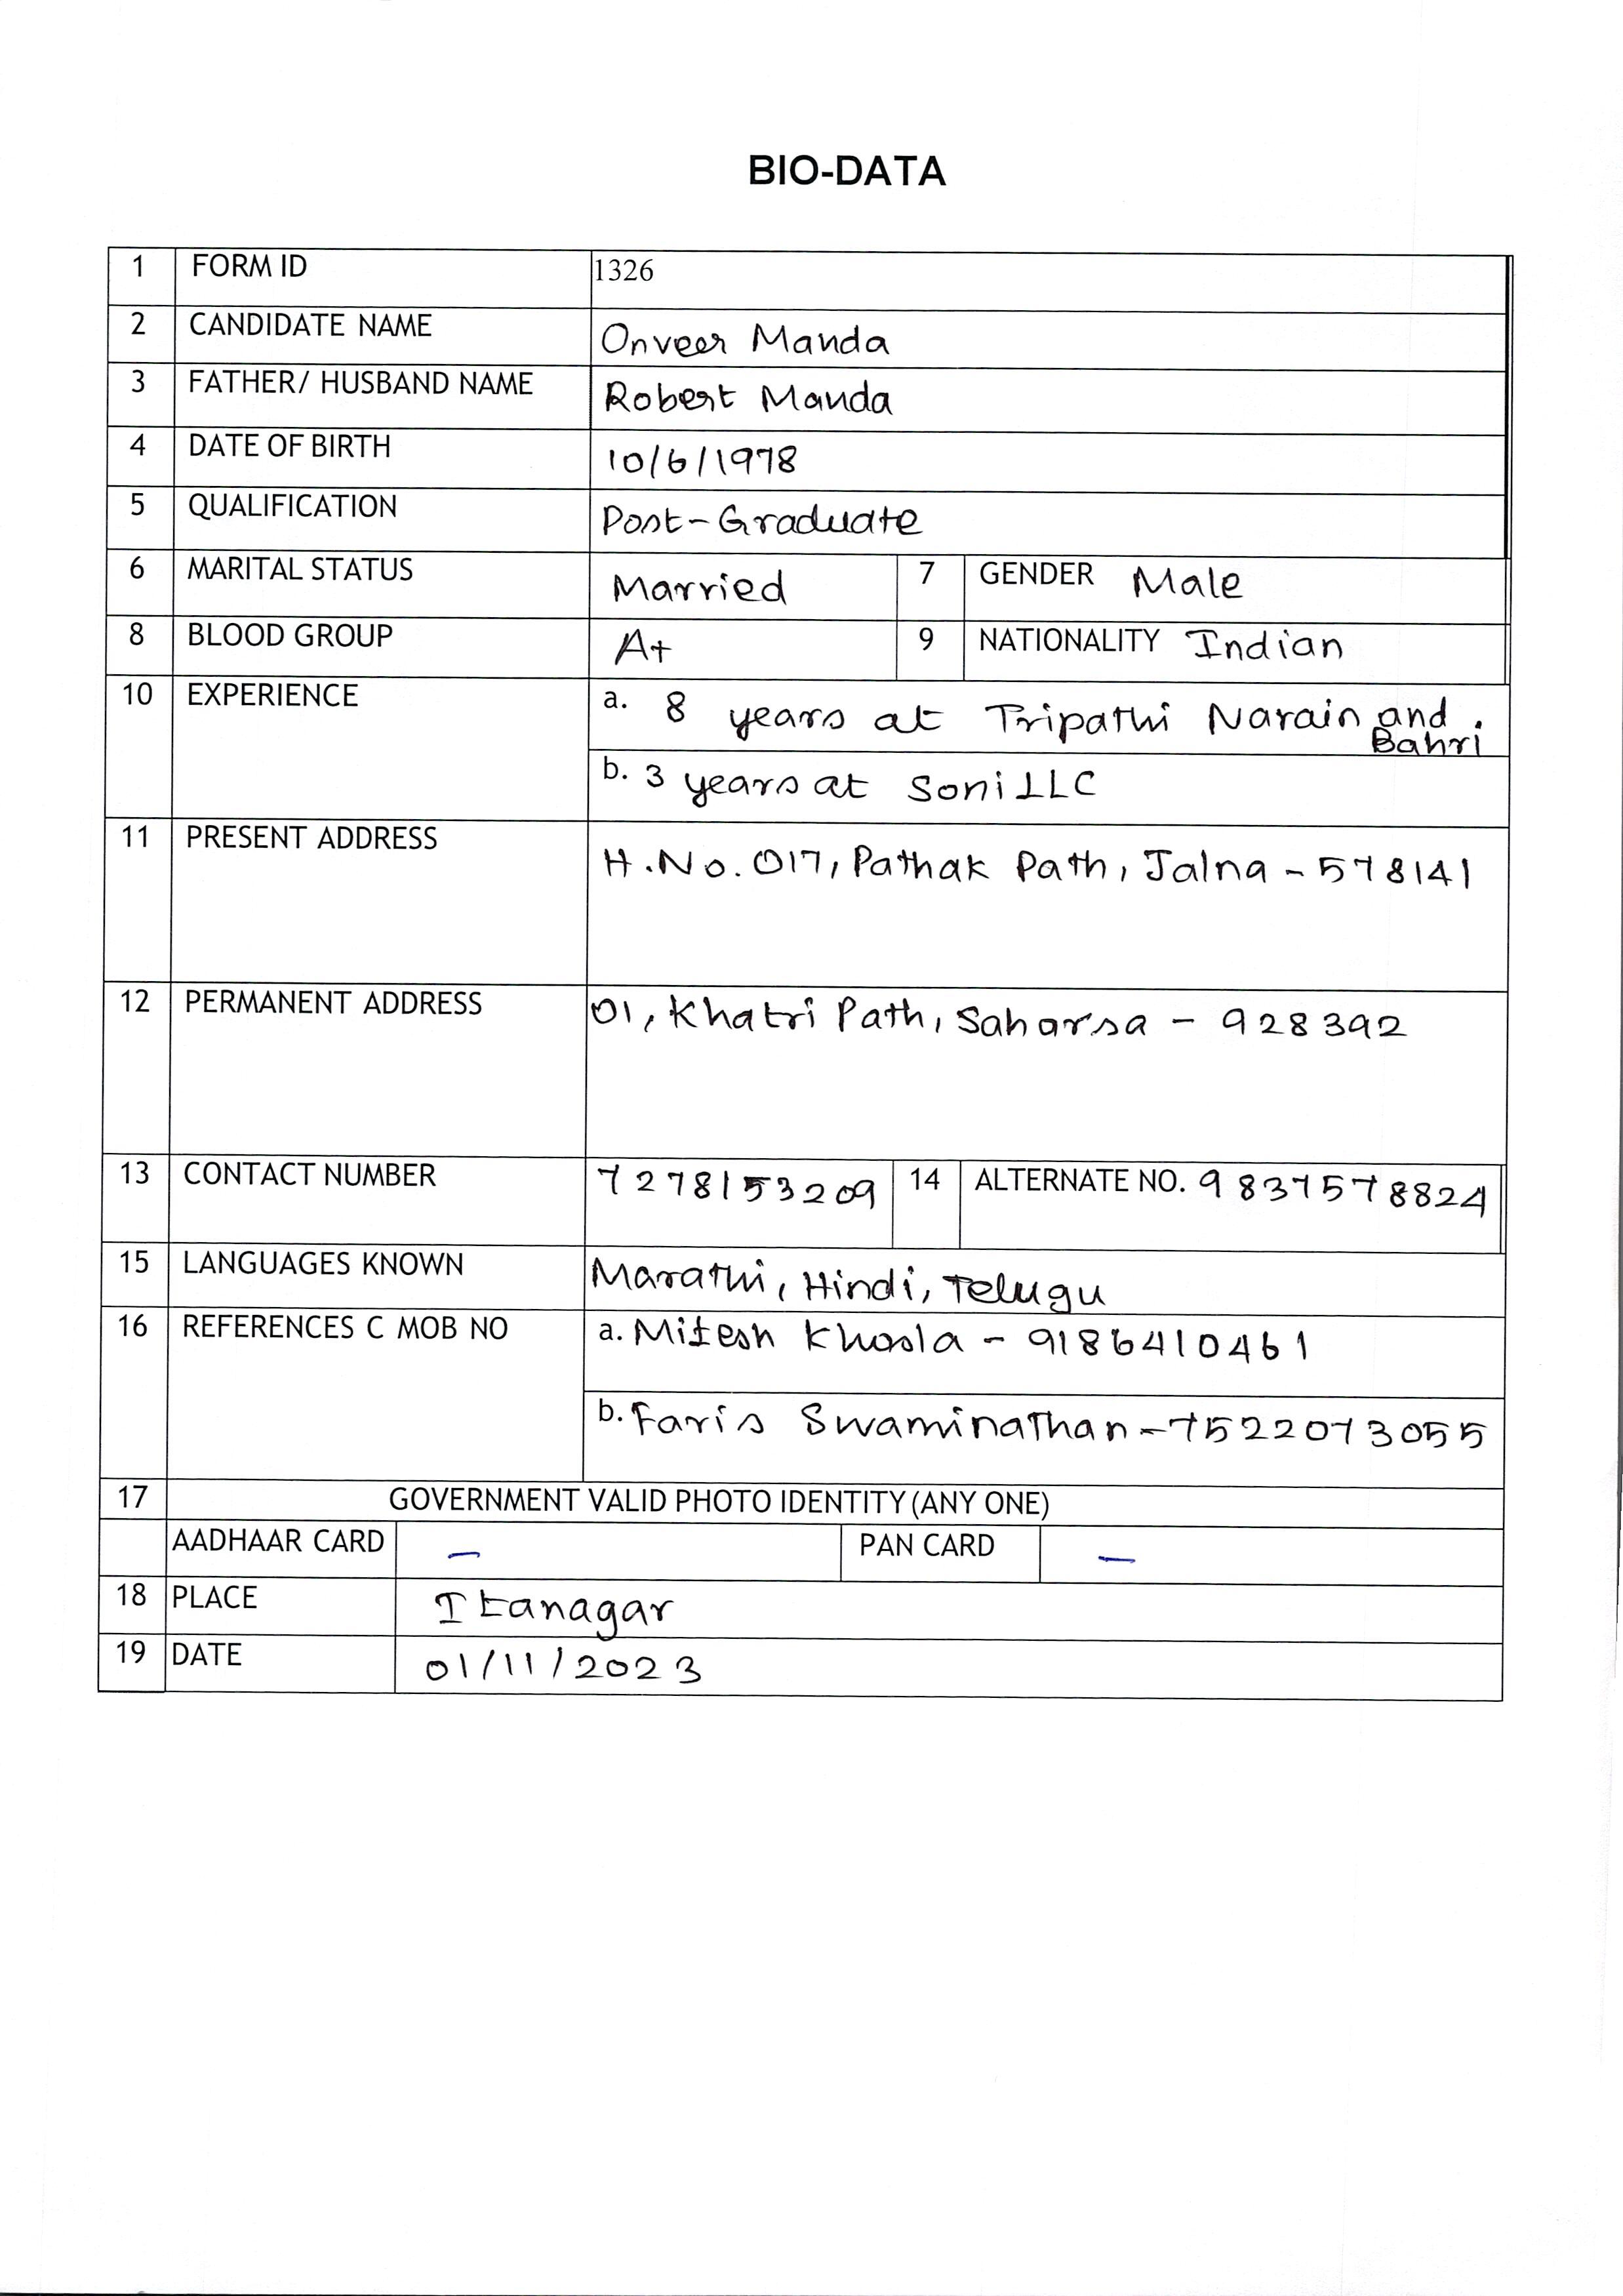 BIO-DATA
1 FORM ID 1326
2 CANDIDATE NAME Onveer Manda
3 FATHER/ HUSBAND NAME Robert Manda
4 DATE OF BIRTH 10/6/1978
5 QUALIFICATION Post-Graduate
6 MARITAL STATUS Married 7 GENDER Male
8 BLOOD GROUP A+ 9 NATIONALITY Indian
10 EXPERIENCE a. 8 years at Tripathi Narain and .
Bahri
b. 3 years at Soni LLC
11 PRESENT ADDRESS H.No. 017, Pathak Path, Jalna - 578141
12 PERMANENT ADDRESS 01, Khatri Path, Saharsa - 928392
13 CONTACT NUMBER 7278153209 14 ALTERNATE NO. 9837578824
15 LANGUAGES KNOWN Marathi, Hindi, Telugu
16 REFERENCES C MOB NO a. Mitesh Khosla - 9186410461
b. Faris Swaminathan - 7522073055
17 GOVERNMENT VALID PHOTO IDENTITY (ANY ONE)
AADHAAR CARD - PAN CARD -
18 PLACE Itanagar
19 DATE 01/11/2023